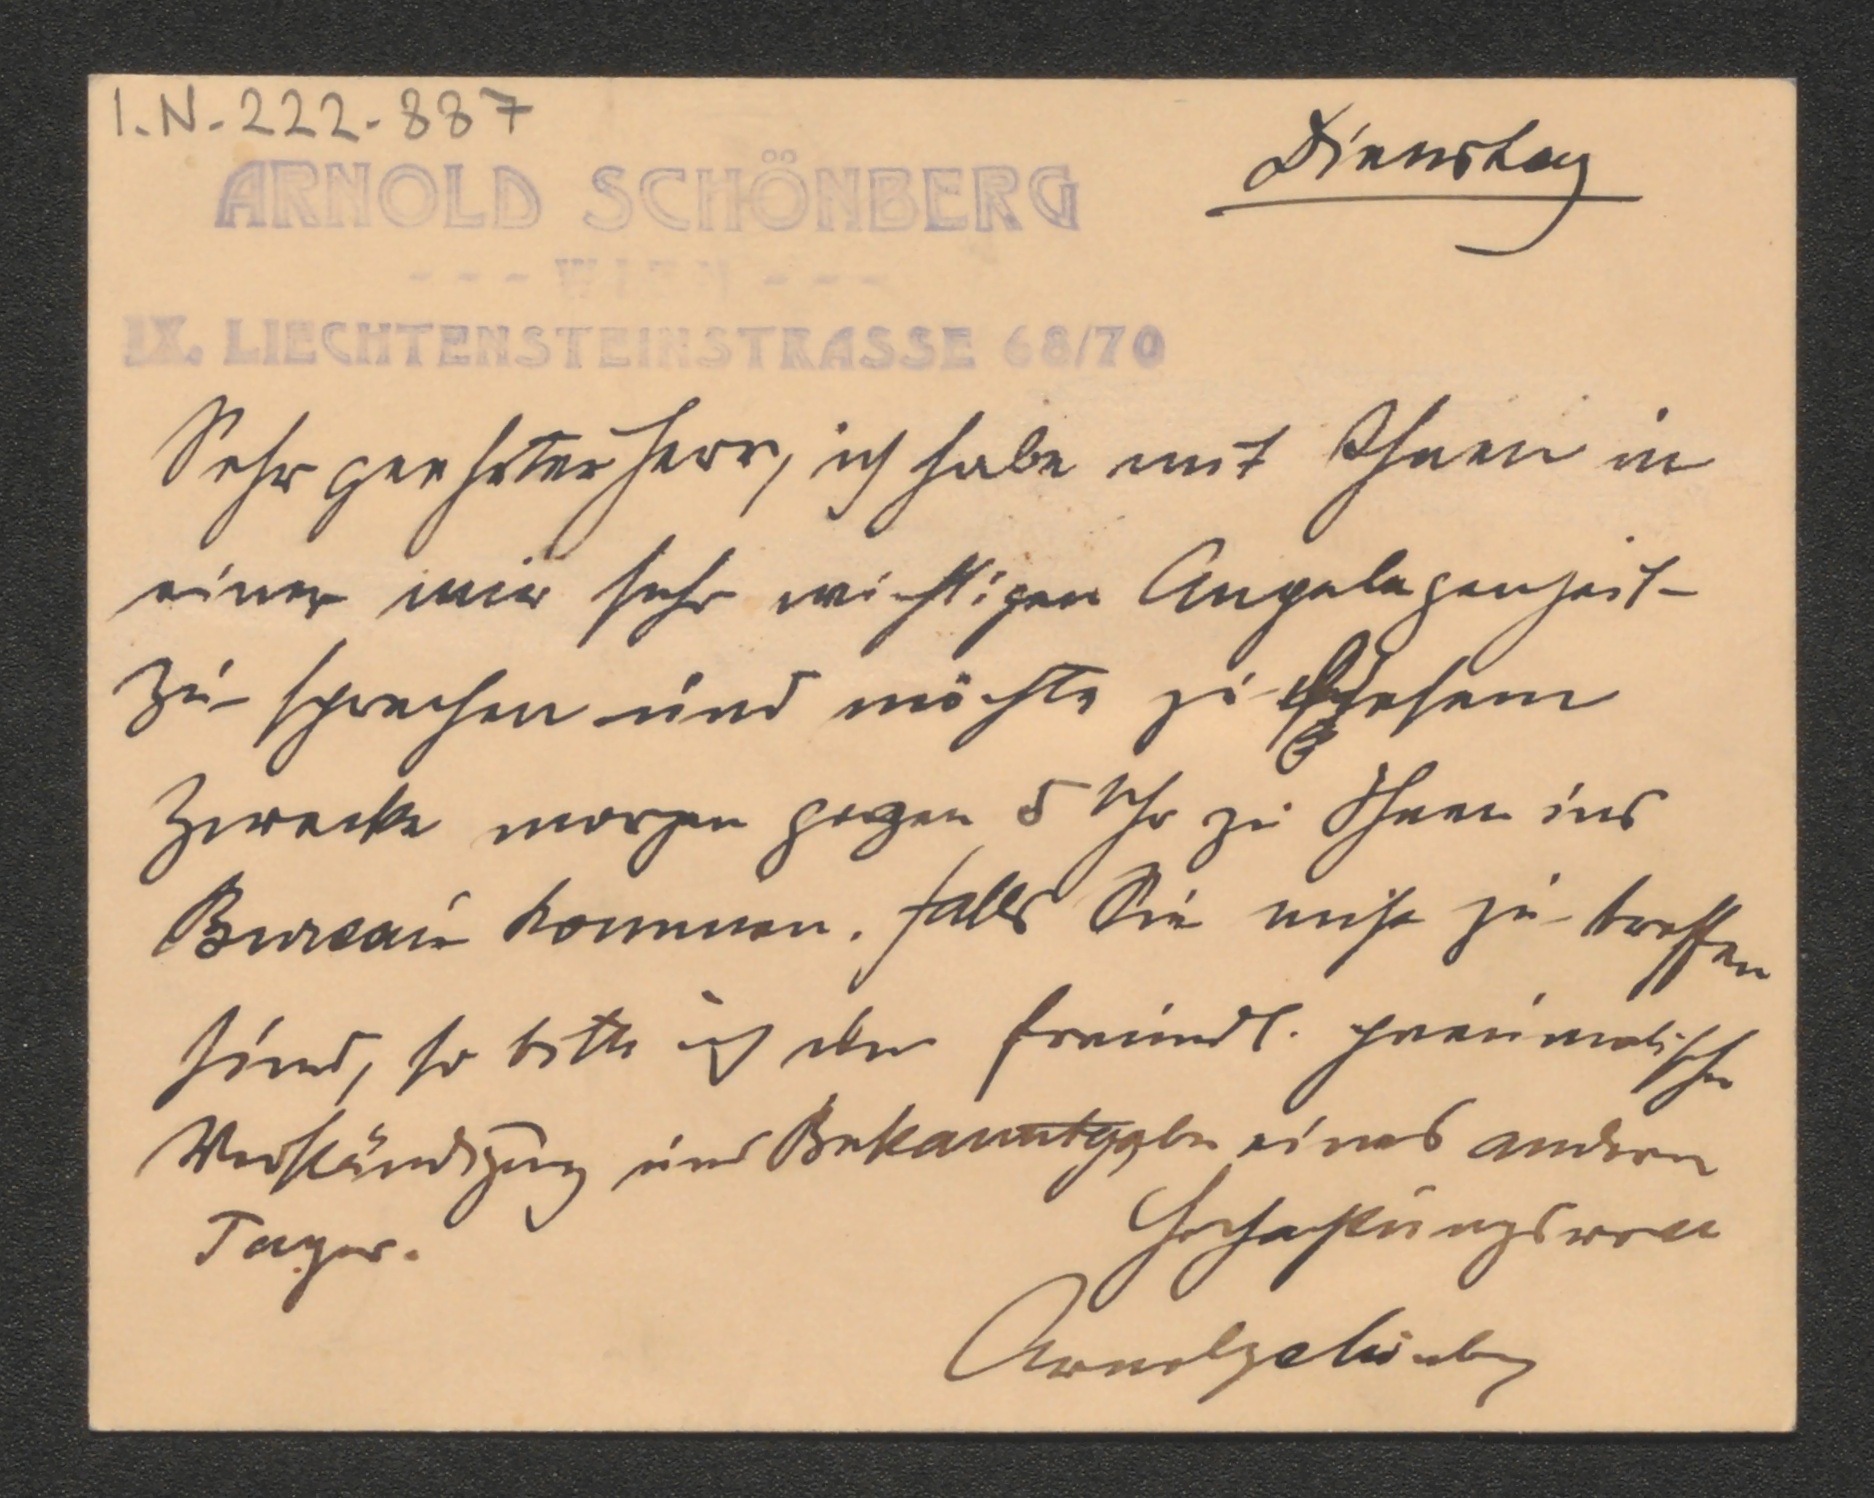 I.N.-222-887
Dienstag
ARNOLD SCHÖNBERG
- - - WIEN - - -
IX. LIECHTENSTEINSTRASSE 68/70
Sehr geehrter Herr, ich habe mit Ihnen in
einer mir sehr wichtigen Angelegenheit
zu sprechen und möchte zu diesem
Zwecke morgen gegen 5 Uhr zu Ihnen ins
Bureau kommen. Falls Sie nicht zu treffen
sind, so bitte ich um freundl. pneumatische
Verständigung und Bekanntgabe eines andern
Tages.
Hochachtungsvoll
Arnold Schönberg